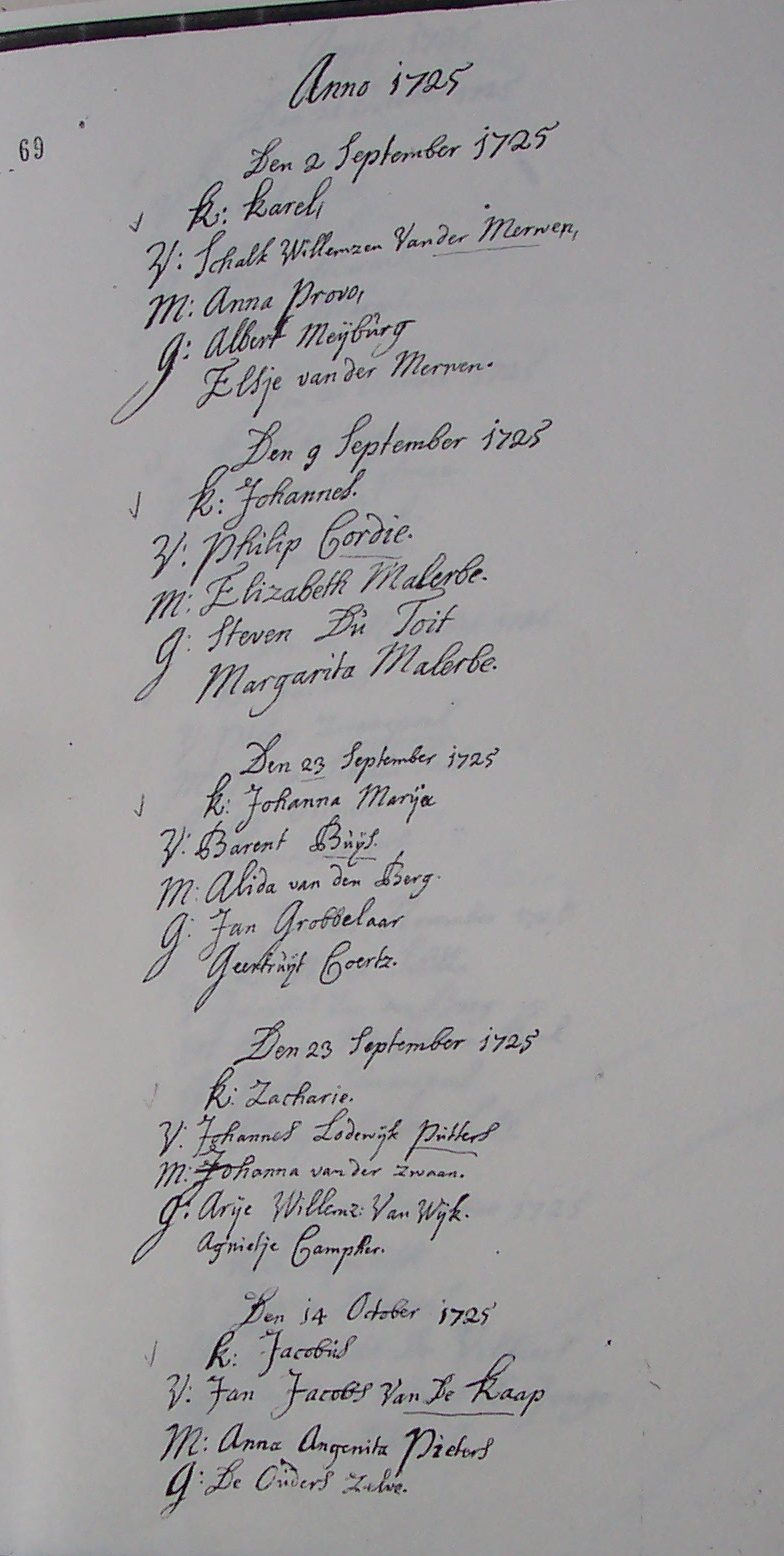 Anno 1725
69
Den 2 September 1725
k: karel,
V: Schalk Willemzen Vander Merwen,
M: Anna Provo,
G: Albert Meÿbúrg
Elsje van der Merwen.
Den 9 September 1725
k: Johannes.
V: Philip Cordie.
M: Elizabeth Malerbe.
G: Steven Dú Toit
Margarita Malerbe.
Den 23 September 1725
k: Johanna Marÿa
V: Barent Búÿs.
M: Alida van den Berg.
G: Jan Grobbelaar
Geertrúÿt Coertz.
Den 23 September 1725
k: Zacharie.
V: Johannes Lodewÿk Pútters
M: Johanna van der zwaan.
G: Arÿe Willemz: Van Wÿk.
Agnietje Campher.
Den 14 October 1725
k: Jacobús
V: Jan Jacobs Van De Kaap
M: Anna Angenita Pieters
G: De Oúders zelve.